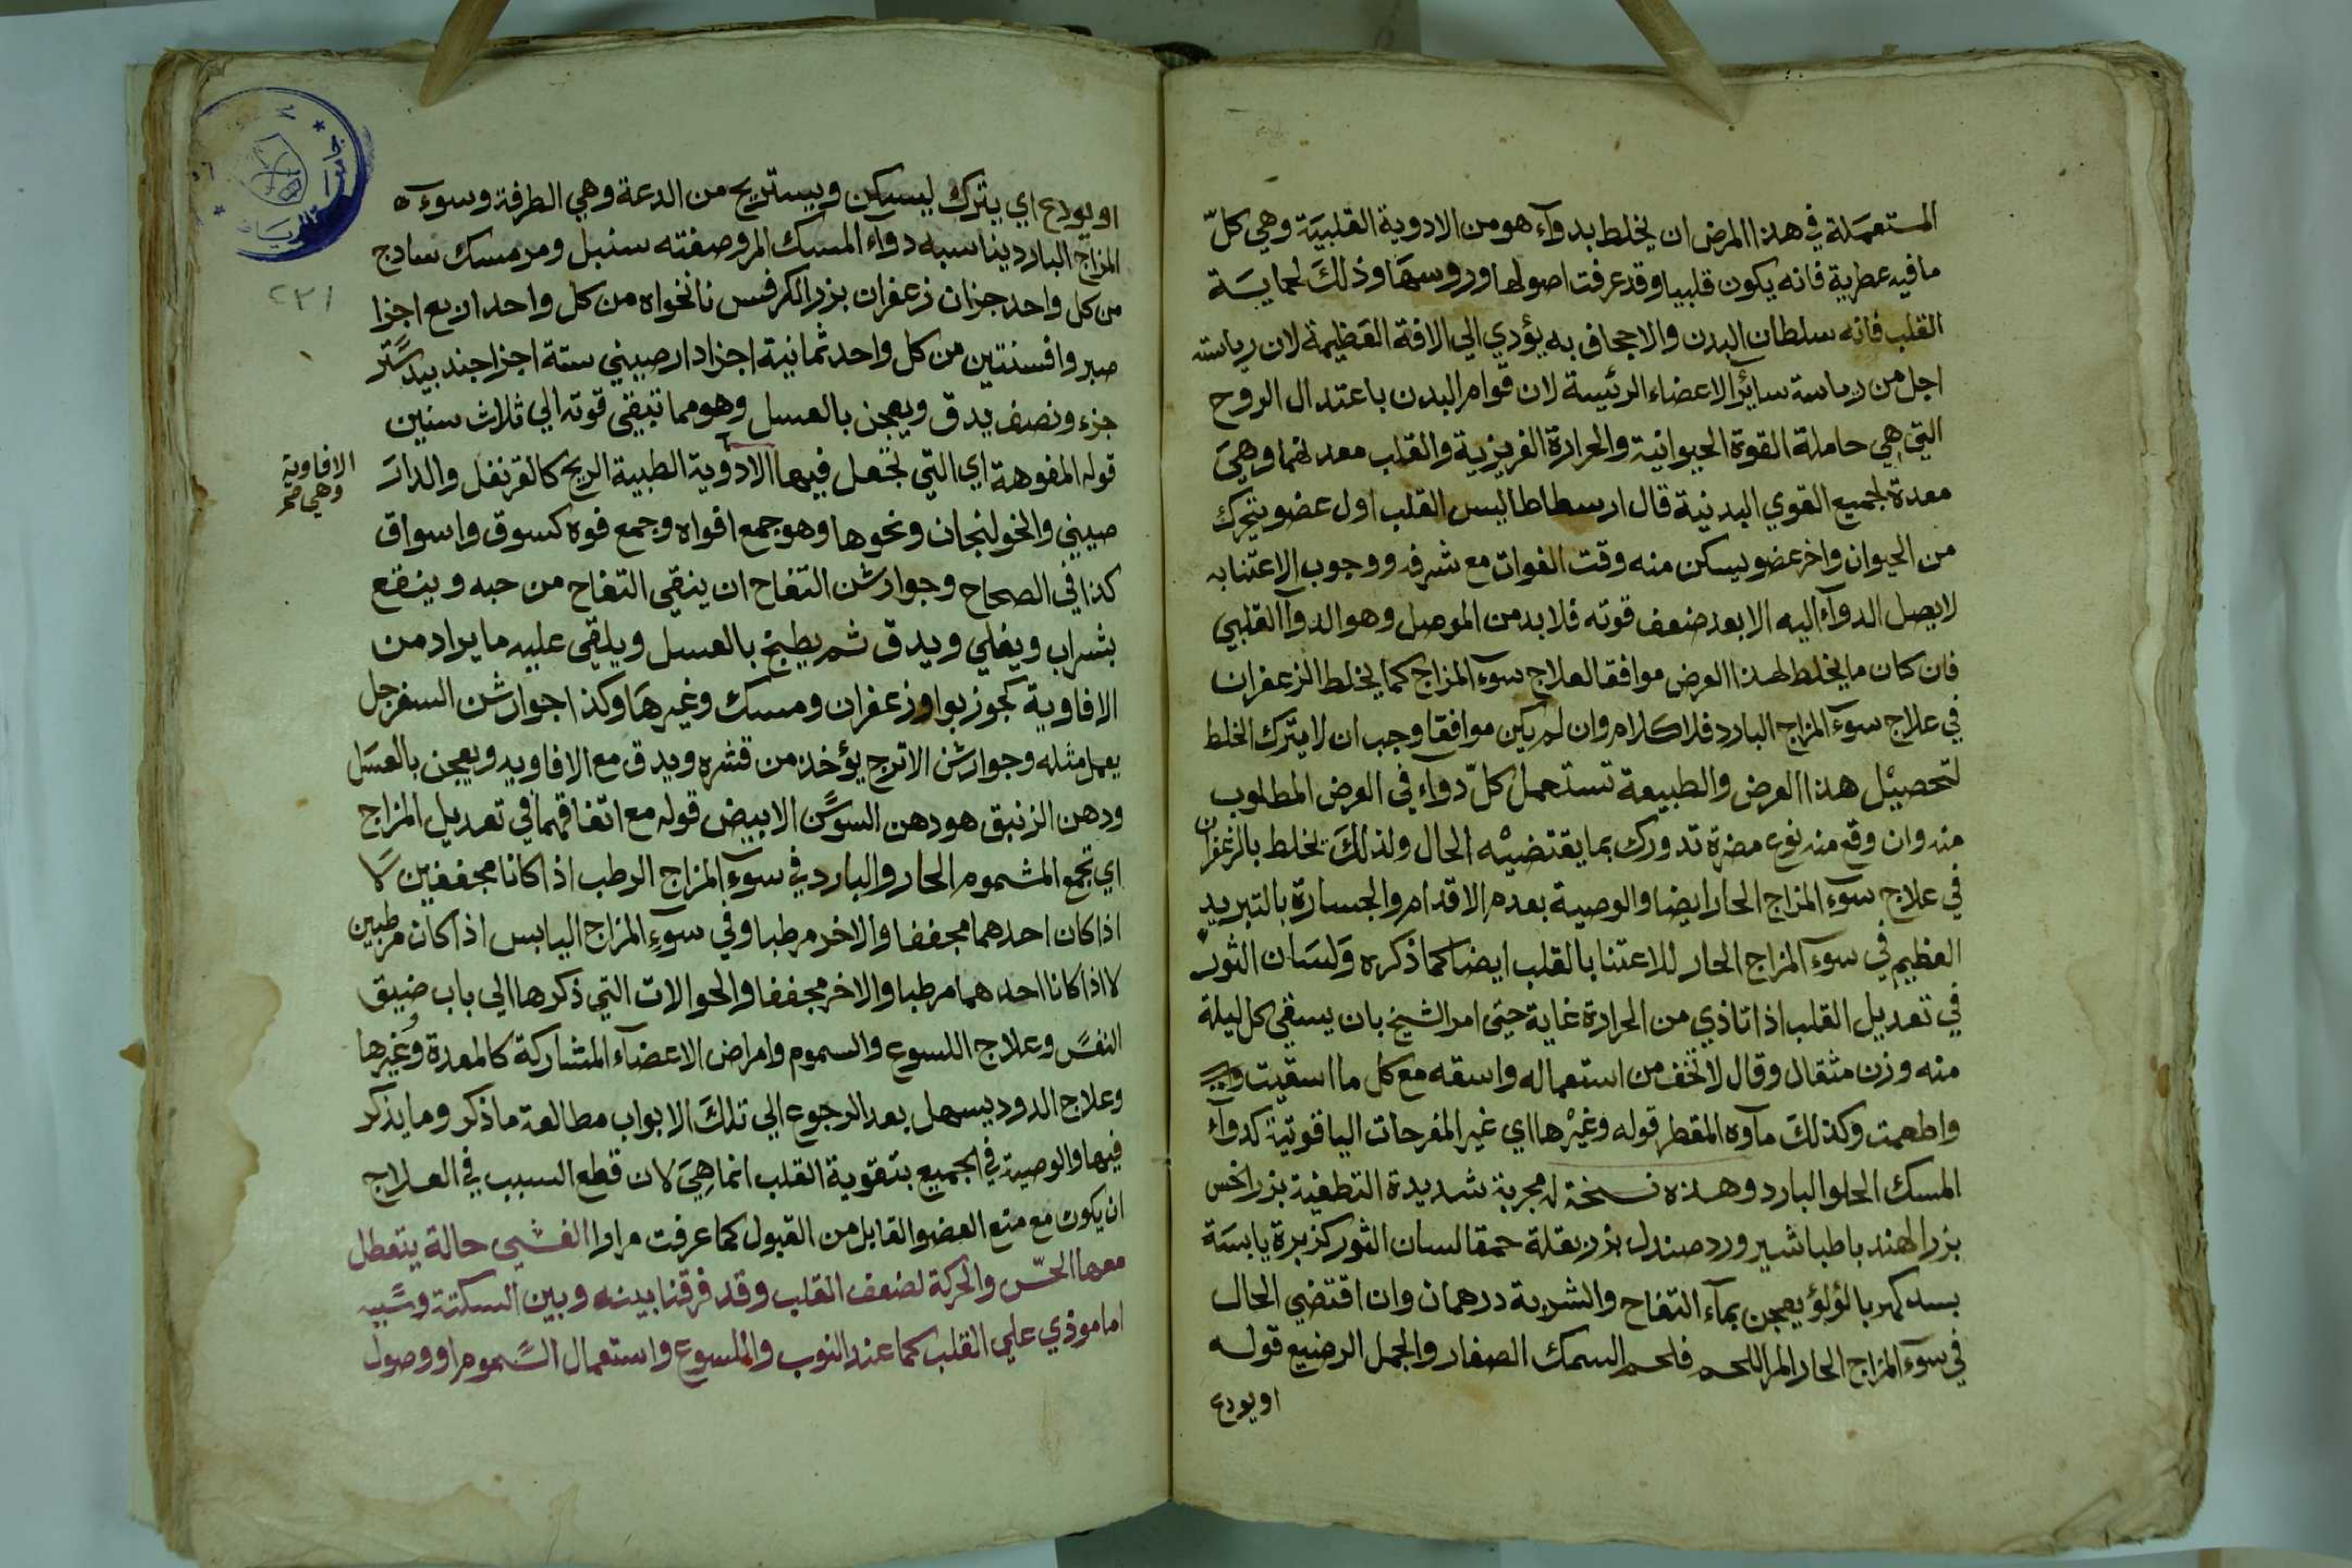 المستعملة في هذا المرض ان يخلط بدوآء هو من الادوية القلبية وهي كلّ
ما فيه عطرية فانه يكون قلبيا وقد عرفت اصولها وروسها وذلك لحماية
القلب فانه سلطان البدن والاجحاف به يؤدي الي الافة العظيمة لان رياسته
اجل من رياسة سائر الاعضاء الرئيسة لان قوام البدن باعتدال الروح
التي هي حاملة القوة الحيوانية والحرارة الغريزية والقلب معدنهما وهي
معدة لجميع القوي البدنية قال ارسطاطاليس القلب اول عضو يتحرك
من الحيوان واخر عضو يسكن منه وقت الفوات مع شرفه ووجوب الاعتنا به
لا يصل الدوآء اليه الا بعد ضعف قوته فلا بد من الموصل وهو الدوآ القلبي
فان كان ما يخلط لهذا الغرض موافقا لعلاج سوء المزاج كما يخلط الزعفران
في علاج سوء المزاج البارد فلا كلام وان لم يكن موافقا وجب ان لا يترك الخلط
لتحصيل هذا الغرض والطبيعة تستعمل كلّ دواء في الغرض المطلوب
منه وان وقع منه نوع مضرة تدورك بما يقتضيه الحال ولذلك يخلط بالزعفران
في علاج سوء المزاج الحار ايضا والوصية بعدم الاقدام والجسارة بالتبريد
العظيم في سوء المزاج الحار للاعتنا بالقلب ايضا كما ذكره ولسان الثور
في تعديل القلب اذا تاذي من الحرارة غاية حتي امر الشيخ بان يسقي كل ليلة
منه وزن مثقال وقال لا تخف من استعماله واسقه مع كل ما اسقيت
واطعمت وكذلك مآوه المقطر قوله وغيرها اي غير المفرحات الياقوتية كدوآء
المسك الحلو البارد وهذه نسخة له مجربة شديدة التطفية بزر الخس
بزر الهندبا طباشير ورد صندل بزر بقلة حمقا لسان الثور كزبرة يابسة
بسد كهربا لؤلؤ يعجن بمآء التفاح والشربة درهمان وان اقتضي الحال
في سوء المزاج الحار المر اللحم فلحم السمك الصغار والجمل الرضيع قوله
او يودع
او يودع اي يترك ليسكن ويستريح من الدعة وهي الطرفة وسوء
المزاج البارد يناسبه دواء المسك المر وصفته سنبل ومر مسك سادج
من كل واحد جزان زعفران بزر الكرفس نانخواه من كل واحد اربع اجزا
صبر وافسنتين من كل واحد ثمانية اجزا دارصيني ستة اجزا جند بيدستر
جزء ونصف يدق ويعجن بالعسل وهو مما تبقي قوته الي ثلاث سنين
قوله المفوهة اي التي تجعل فيها الادوية الطيبة الريح كالقرنفل والدار
الافاوية
وهي صح
صيني والخولنجان ونحوها وهو جمع افواه وجمع فوه كسوق واسواق
كذا في الصحاح وجوارشن التفاح ان ينقي التفاح من حبه وينقع
بشراب ويغلي ويدق ثم يطبخ بالعسل ويلقي عليه ما يراد من
الافاوية كجوزبوا وزعفران ومسك وغيرها وكذا جوارشن السفرجل
يعمل مثله وجوارشن الاترج يؤخذ من قشره ويدق مع الافاويه ويعجن بالعسل
ودهن الزنبق هو دهن السوسن الابيض قوله مع اتفاقهما في تعديل المزاج
اي تجمع المشموم الحار والبارد في سوء المزاج الرطب اذا كانا مجففين لا
اذا كان احدهما مجففا والاخر مرطبا وفي سوء المزاج اليابس اذا كان مرطبين
لا اذا كانا احدهما مرطبا والاخر مجففا والحوالات التي ذكرها الي باب ضيق
النفس وعلاج اللسوع والسموم وامراض الاعضآء المشاركة كالمعدة وغيرها
وعلاج الدود يسهل بعد الرجوع الي تلك الابواب مطالعة ما ذكر وما يذكر
فيها والوصية في الجميع بتقوية القلب انما هي لان قطع السبب في العلاج
ان يكون مع منع العضو القابل من القبول كما عرفت مرارا الغشي حالة يتعطل
معها الحسّ والحركة لضعف القلب وقد فرقنا بينه وبين السكتة وسببه
اما موذي علي القلب كما عند النوب والملسوع واستعمال السموم او وصول
٢٢١